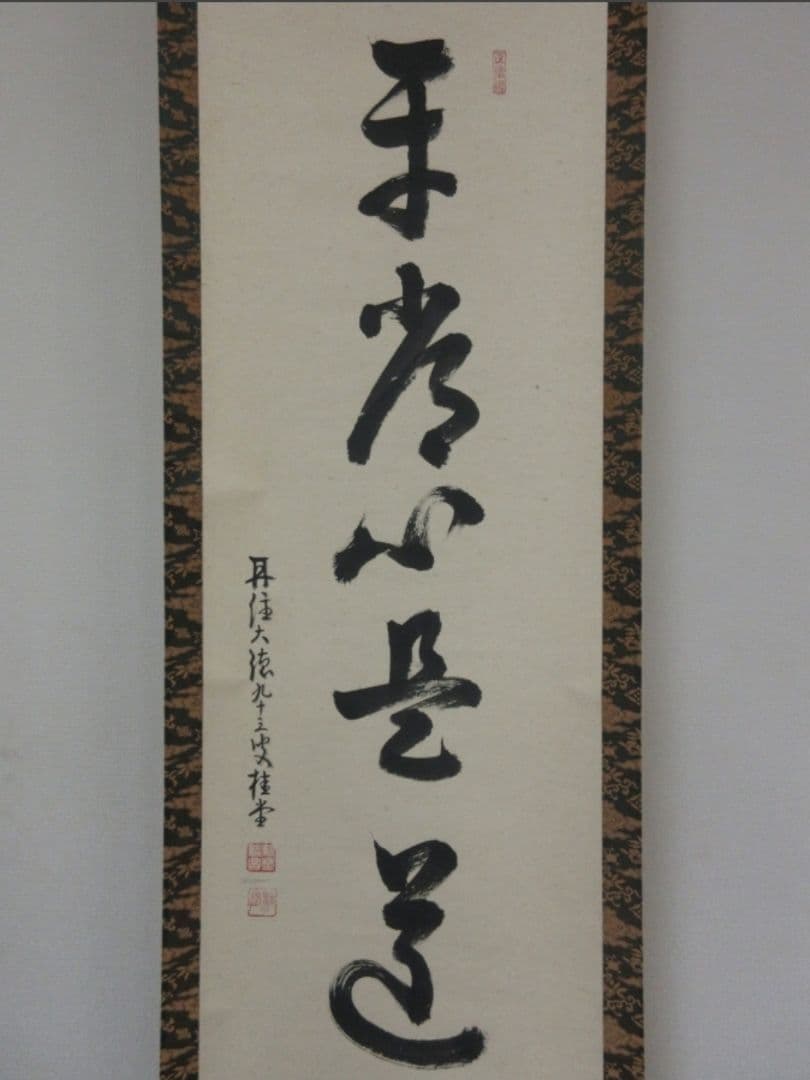 平常心是道
再住大徳九十三叟桂堂